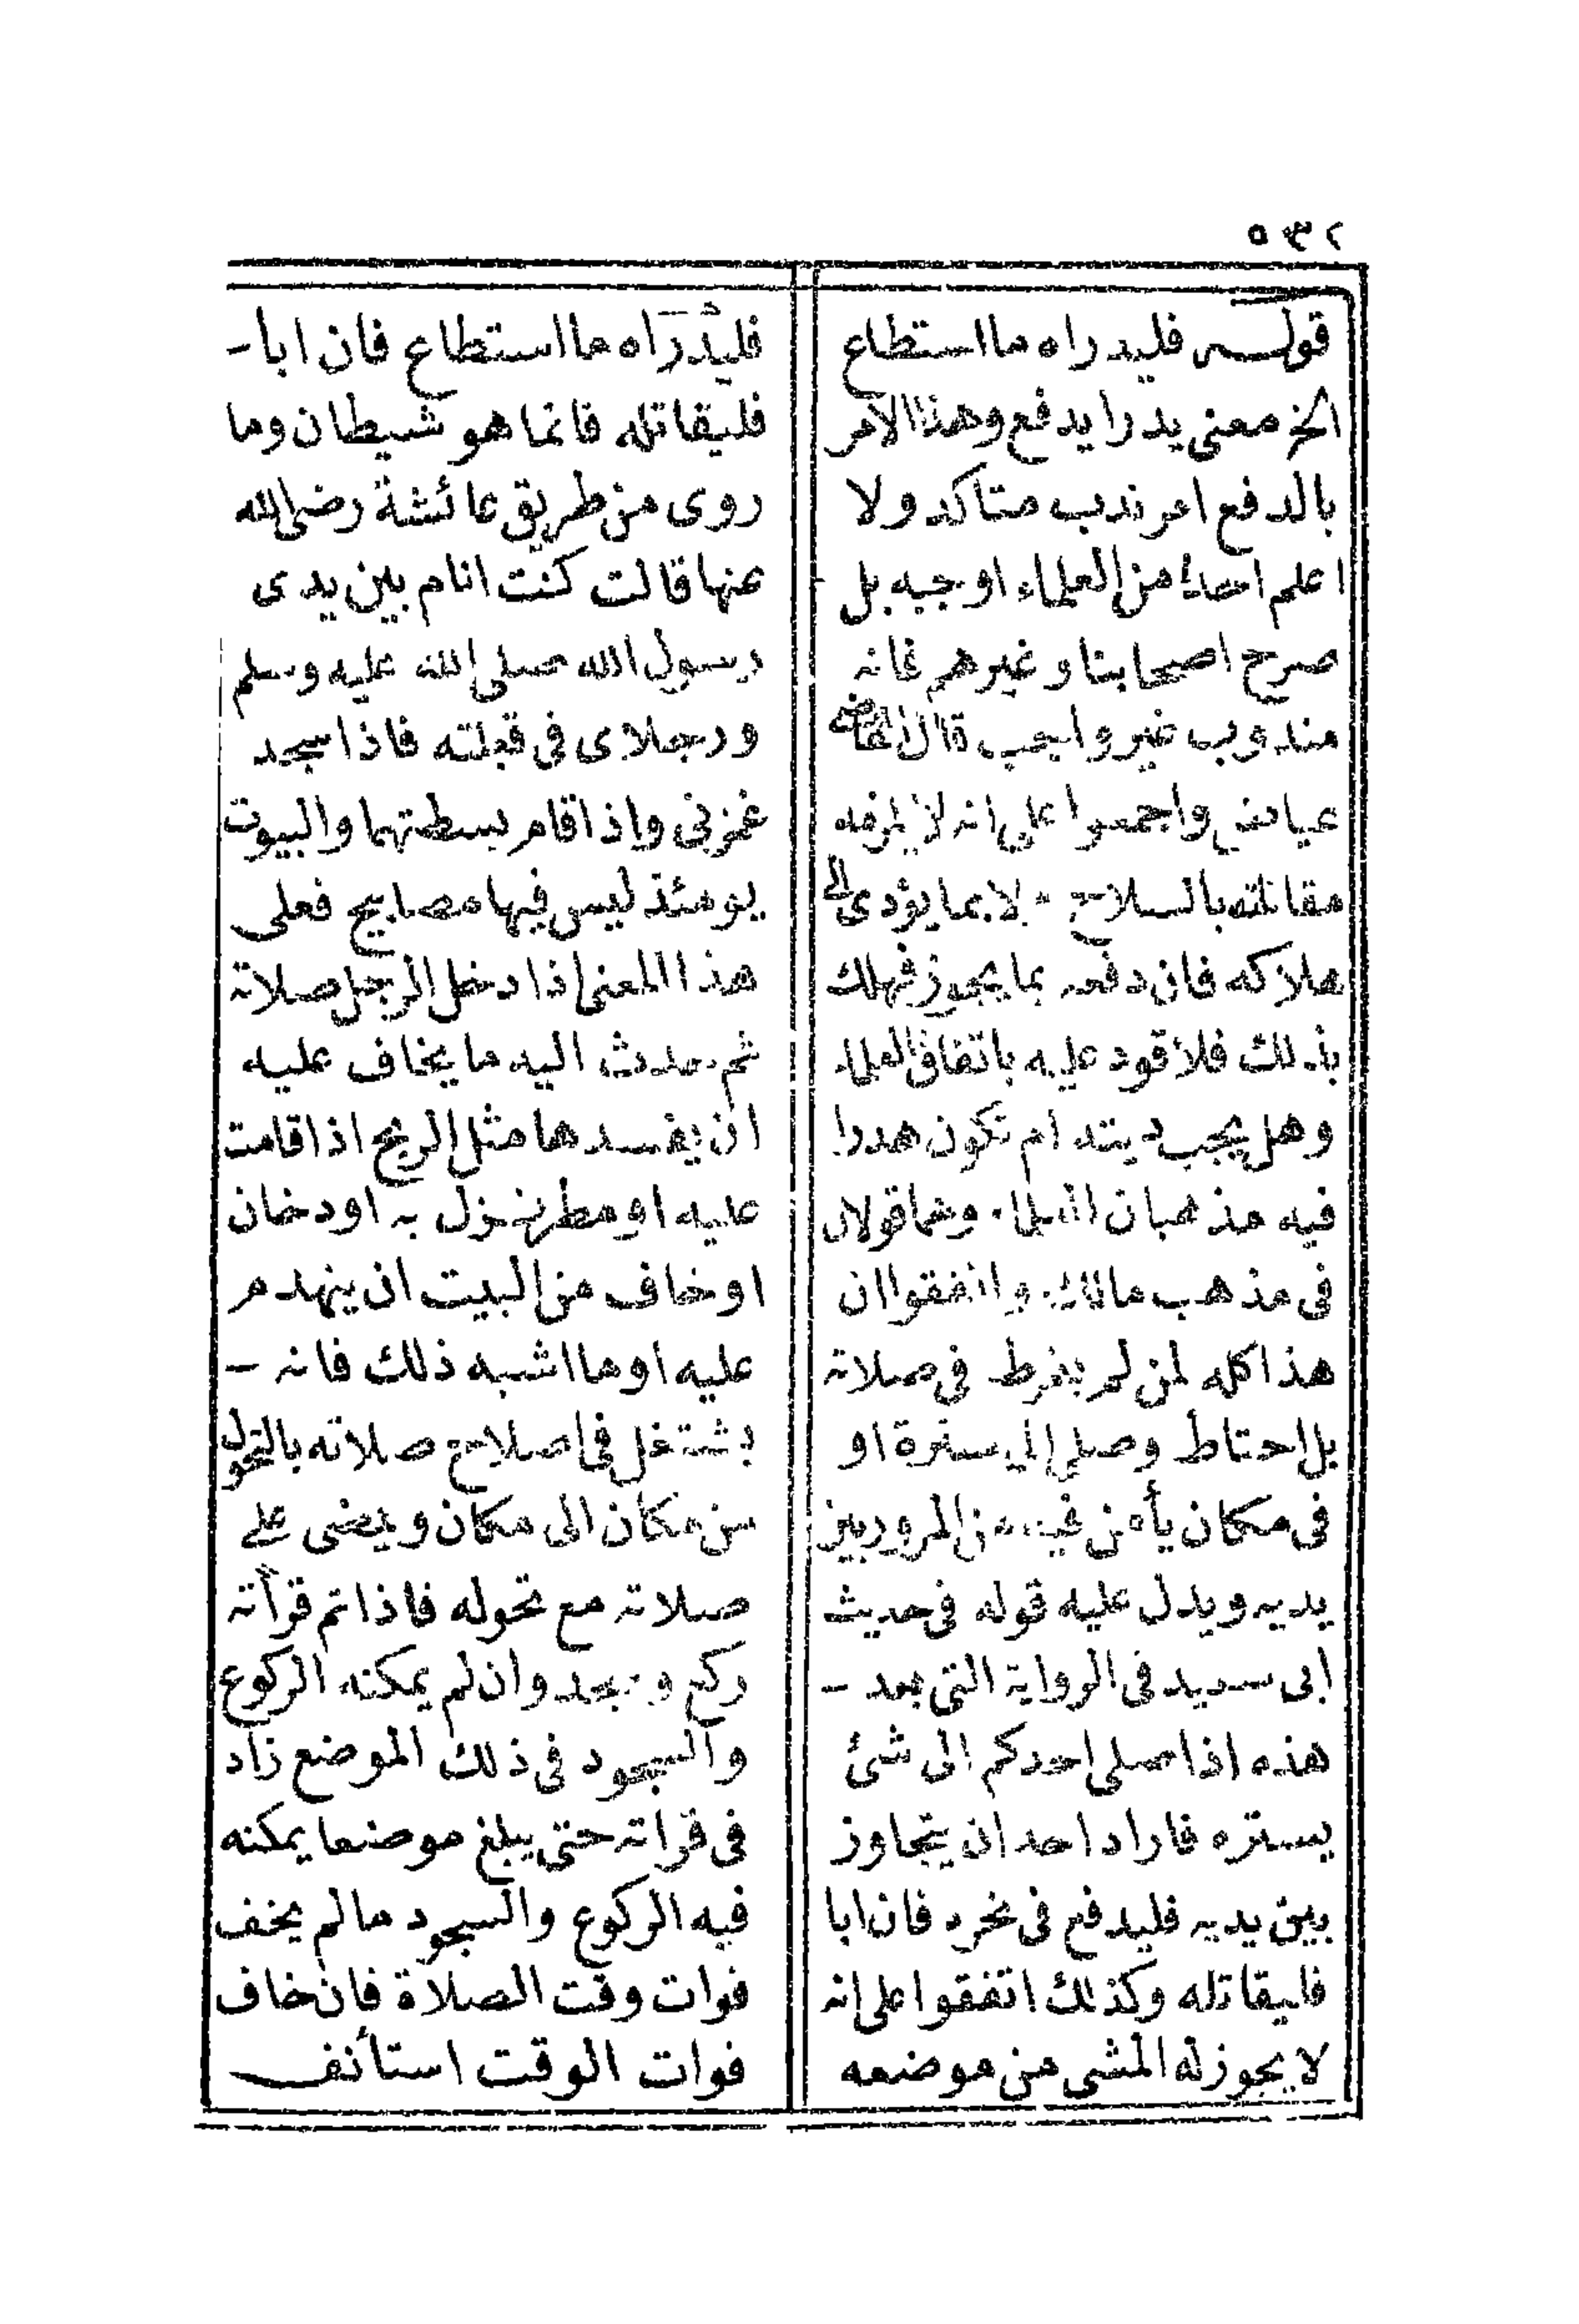 ٥٣٢
قوله فليدراه ما استطاع
الخ معنى يدرا يدفع وهذا الامر
بالدفع امر ندب متاكد ولا
اعلم احدا من العلماء اوجبه بل
صرح اصحابنا وغيرهم بانه
مندوب غير واجب قال القاضى
عياض واجمعوا على انه لا يلزمه
مقاتلته بالسلاح ولا بما يؤدى الى
هلاكه فان دفعه بما يجوز فهلك
بذلك فلا قود عليه باتفاق العلماء
وهل يجب ديته ام تكون هدرا
فيه مذهبان للعلماء وهما قولان
فى مذهب مالك واتفقوا ان
هذا كله لمن لم يفرط فى صلاته
بل احتاط وصلى الى سترة او
فى مكان يأمن فيه من المرور بين
يديه ويدل عليه قوله فى حديث
ابى سعيد فى الرواية التى بعد -
هذه اذا صلى احدكم الى شئ
يستره فاراد احد ان يتجاوز
بين يديه فليدفع فى نحره فان ابا
فليقاتله وكذلك اتفقوا على انه
لا يجوز له المشى من موضعه
فليدراه ما استطاع فان ابا -
فليقاتله فانما هو شيطان وما
روى من طريق عائشة رضى الله
عنها قالت كنت انام بين يدى
رسول الله صلى الله عليه وسلم
ورجلاى فى قبلته فاذا سجد
غمزنى واذا قام بسطتهما والبيوت
يومئذ ليس فيها مصابيح فعلى
هذا المعنى اذا دخل الرجل صلاته
ثم حدث اليه ما يخاف عليه
ان يفسدها مثل الريح اذا قامت
عليه او مطر نزول به او دخان
او خاف من البيت ان ينهدم
عليه او ما اشبه ذلك فانه -
يشتغل فى اصلاح صلاته بالتحول
من مكان الى مكان ويمضى على
صلاته مع تحوله فاذا تم قرأته
ركع وسجد وان لم يمكنه الركوع
والسجود فى ذلك الموضع زاد
فى قراته حتى يبلغ موضعا يمكنه
فيه الركوع والسجود ما لم يخف
فوات وقت الصلاة فان خاف
فوات الوقت استأنف